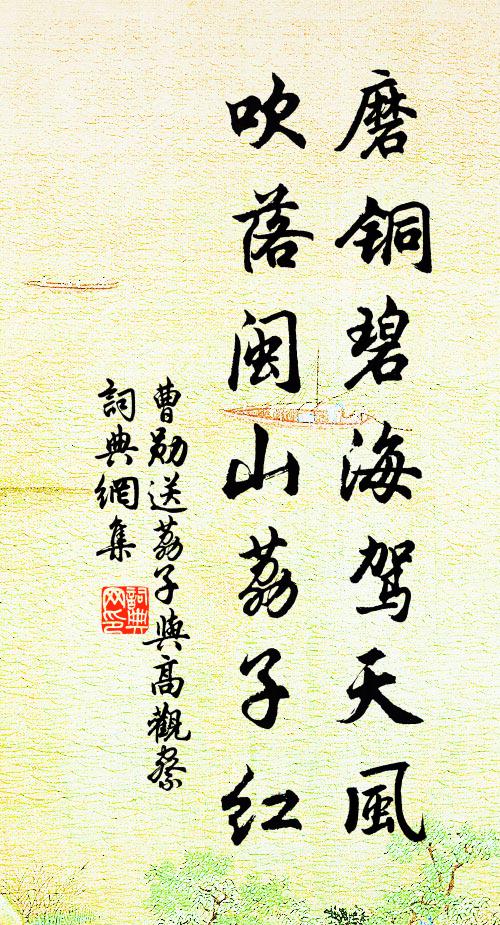 磨铜碧海驾天風
吹落闽山荔子红
曹勋送荔子與高觀察
詞典網集
詞典网印